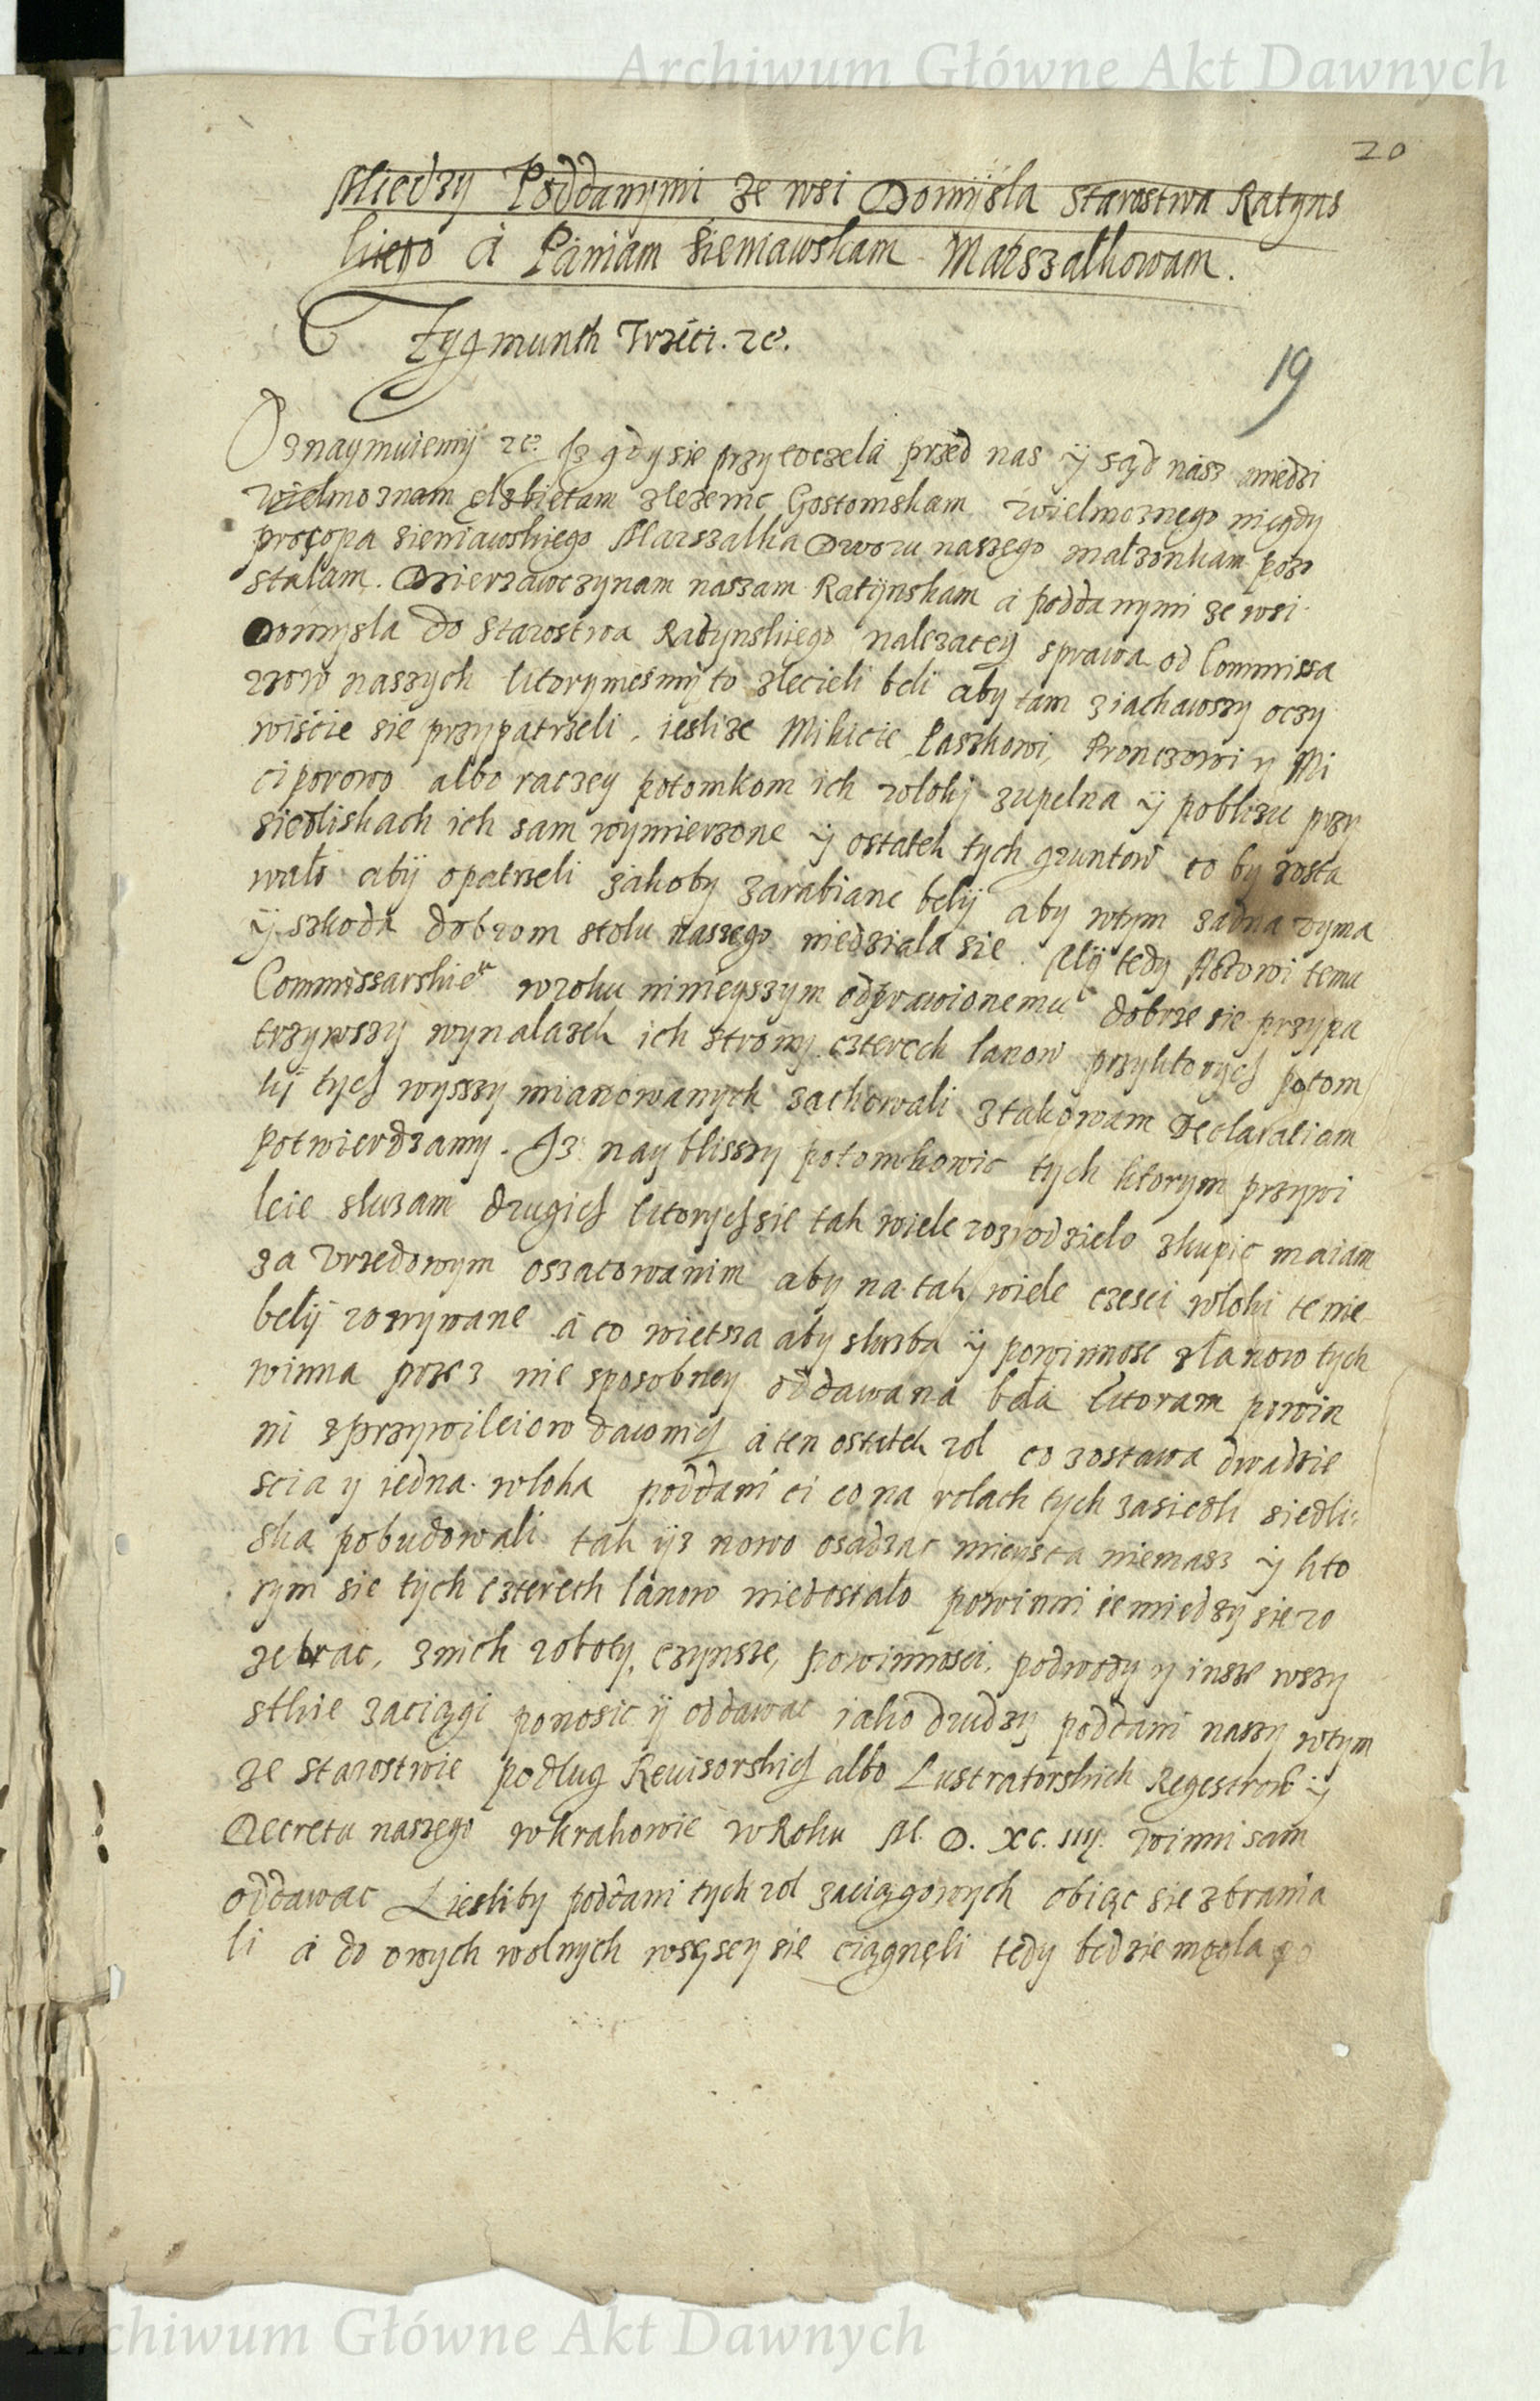 Archiwum Główne Akt Dawnych
20
Miedzy Poddanymi ze wsi Domysla Starostwa Ratyns
kiego à Paniam Sieniawskam Marszalkowam.
Zygmunth Trzeci. etc.
19
Oznaymuiemÿ etc. Jz gdy sie przytoczela przed nas ÿ sąd nasz miedzi
wielmoznam Elzbietam zLezenic Gostomskam wielmoznego niegdy
procopa Sieniawskiego Marszalka Dworu naszego malzonkam pozo
stalam. Dzierzawczynam naszam Ratÿnskam à poddanymi ze wsi
Domysla do Starostwa Ratynskiego nalezacey sprawa od Commissa
rzow naszych ktorymesmÿ to zlecieli beli aby tam ziachawszy oczy
wiście sie przypatrzeli, ieslize Mikicie Laszkowi, Pronczowi y Mi
ciporowo albo raczey potomkom ich wloki zupelna ÿ poblizu przy
siedliskach ich sam wymierzone ÿ ostatek tych gruntow co by zosta
wało abÿ opatrzeli jakoby zarabiane belÿ aby wtym zadna ryma
ÿ szkoda dobrom stolu naszego niedziala sie. Mÿ tedy Aktowi temu
Commissarskie<sup>u</sup> wroku ninieyszym odprawionemu dobrze sie przypa
trzywszy wynalazek ich strony czterech lanow przyktorych potom
ki tych wysszy mianowanych zachowali ztakowam Declaratiam
potwierdzamy. Jz nayblisszy potomkowie tych ktorym przywi
leie sluzam drugich ktorych sie tak wiele rozrodzielo zkupic maiam
za Vrzedowym oszacowanim aby na tak wiele czesci wloki te nie
belÿ rozrywane à co wietsza aby sluzba ÿ powinnosc zlanow tych
winna przez nie sposobney oddawana bela ktoram powin
ni zprzywileiow dawnich à ten ostatek rol co zostawa dwadzie
scia y iedna wloka poddani ci co na rolach tych zasiedli siedli:
ska pobudowali tak ÿz nowo osadzac mieysca niemasz ÿ kto
rym sie tych czterech lanow niedostalo powinni ie miedzy sie ro
zebrac, znich roboty, czynsze, powinnosci, podwody y insze wszy
stkie zaciągi ponosic ÿ oddawac iako drudzy poddani naszy wtym
ze starostwie podlug Reuisorskich albo Lustratorskich Regestrow ÿ
Decretu naszego wkrakowie wRoku M. D. XC. IIIJ. winni sam
oddawac Lieslÿby poddani tych rol zaciągowych obiąc sie zbrania
li à do owych wolnych wsęscy sie ciągnęli tedy bedzie mogla po
Archiwum Główne Akt Dawnych